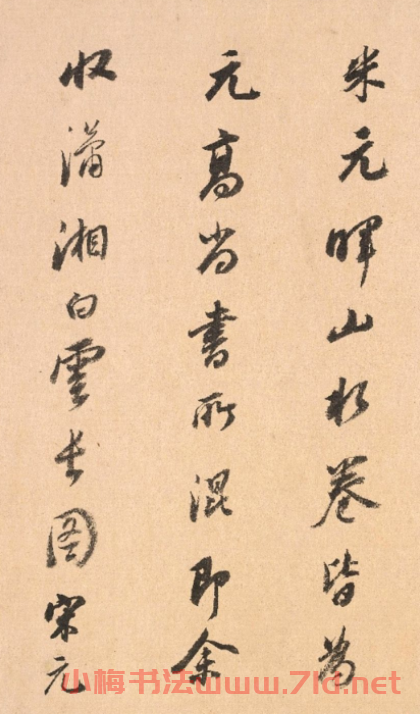 米元暉山水卷皆為
元高尚書所混即余
收瀟湘白雲長图宋元
小梅书法www.71d.net